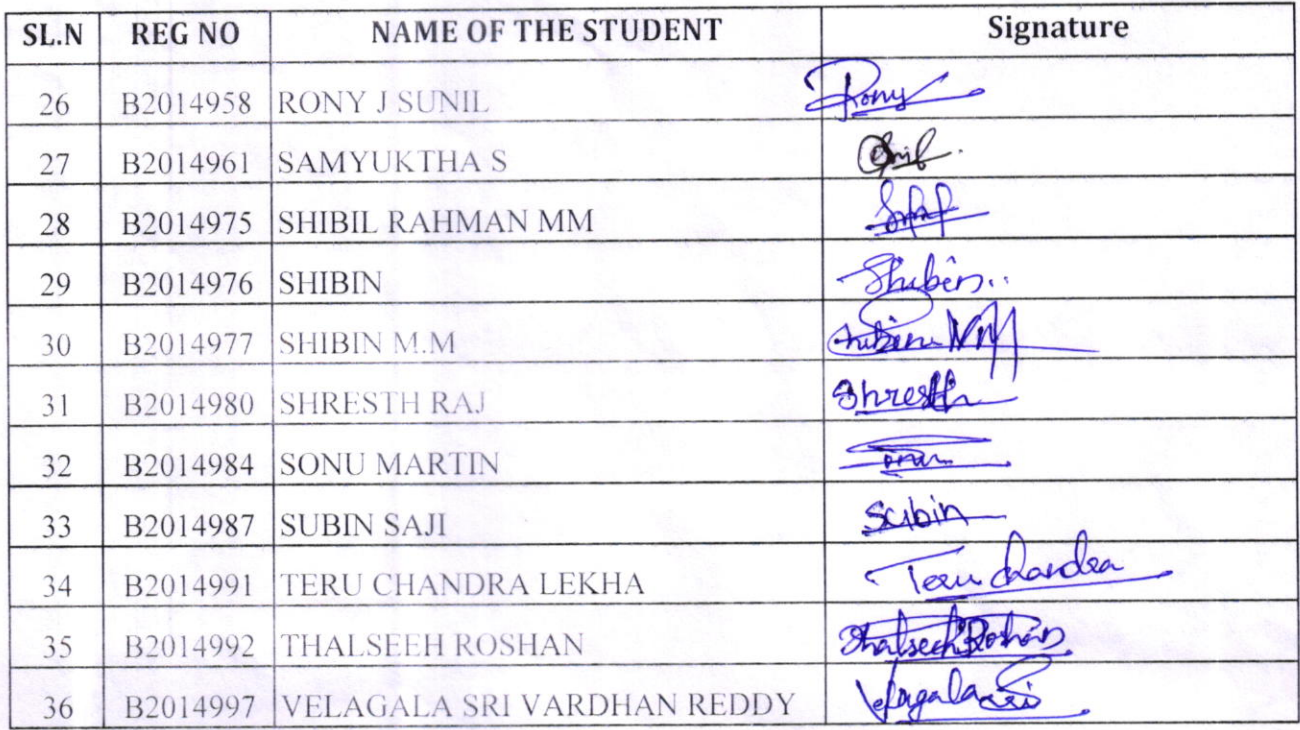 SL.N REG NO NAME OF THE STUDENT Signature
26 B2014958 RONY J SUNIL Rony
27 B2014961 SAMYUKTHA S
28 B2014975 SHIBIL RAHMAN MM
29 B2014976 SHIBIN Shibin..
30 B2014977 SHIBIN M.M Shibin MM
31 B2014980 SHRESTH RAJ Shresth
32 B2014984 SONU MARTIN Sonu
33 B2014987 SUBIN SAJI Subin
34 B2014991 TERU CHANDRA LEKHA Teru Chandra
35 B2014992 THALSEEH ROSHAN Thalseeh Roshan
36 B2014997 VELAGALA SRI VARDHAN REDDY Velagala Sri